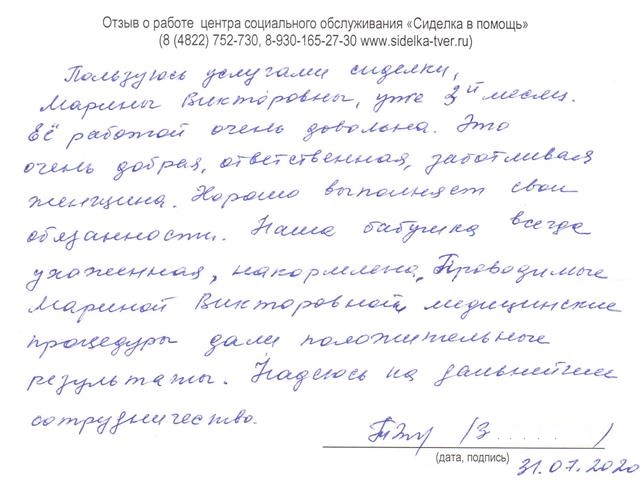 Отзыв о работе центра социального обслуживания «Сиделка в помощь»
(8 (4822) 752-730, 8-930-165-27-30 www.sidelka-tver.ru)
Пользуюсь услугами сиделки,
Марины Викторовны, уже 3й месяц.
Её работой очень довольна. Это
очень добрая, ответственная, заботливая
женщина. Хорошо выполняет свои
обязанности. Наша бабушка всегда
ухаженная, накормлена. Проводимые
Мариной Викторовной медицинские
процедуры дали положительные
результаты. Надеюсь на дальнейшее
сотрудничество.
(З . . . . . . )
(дата, подпись)
31.07.2020